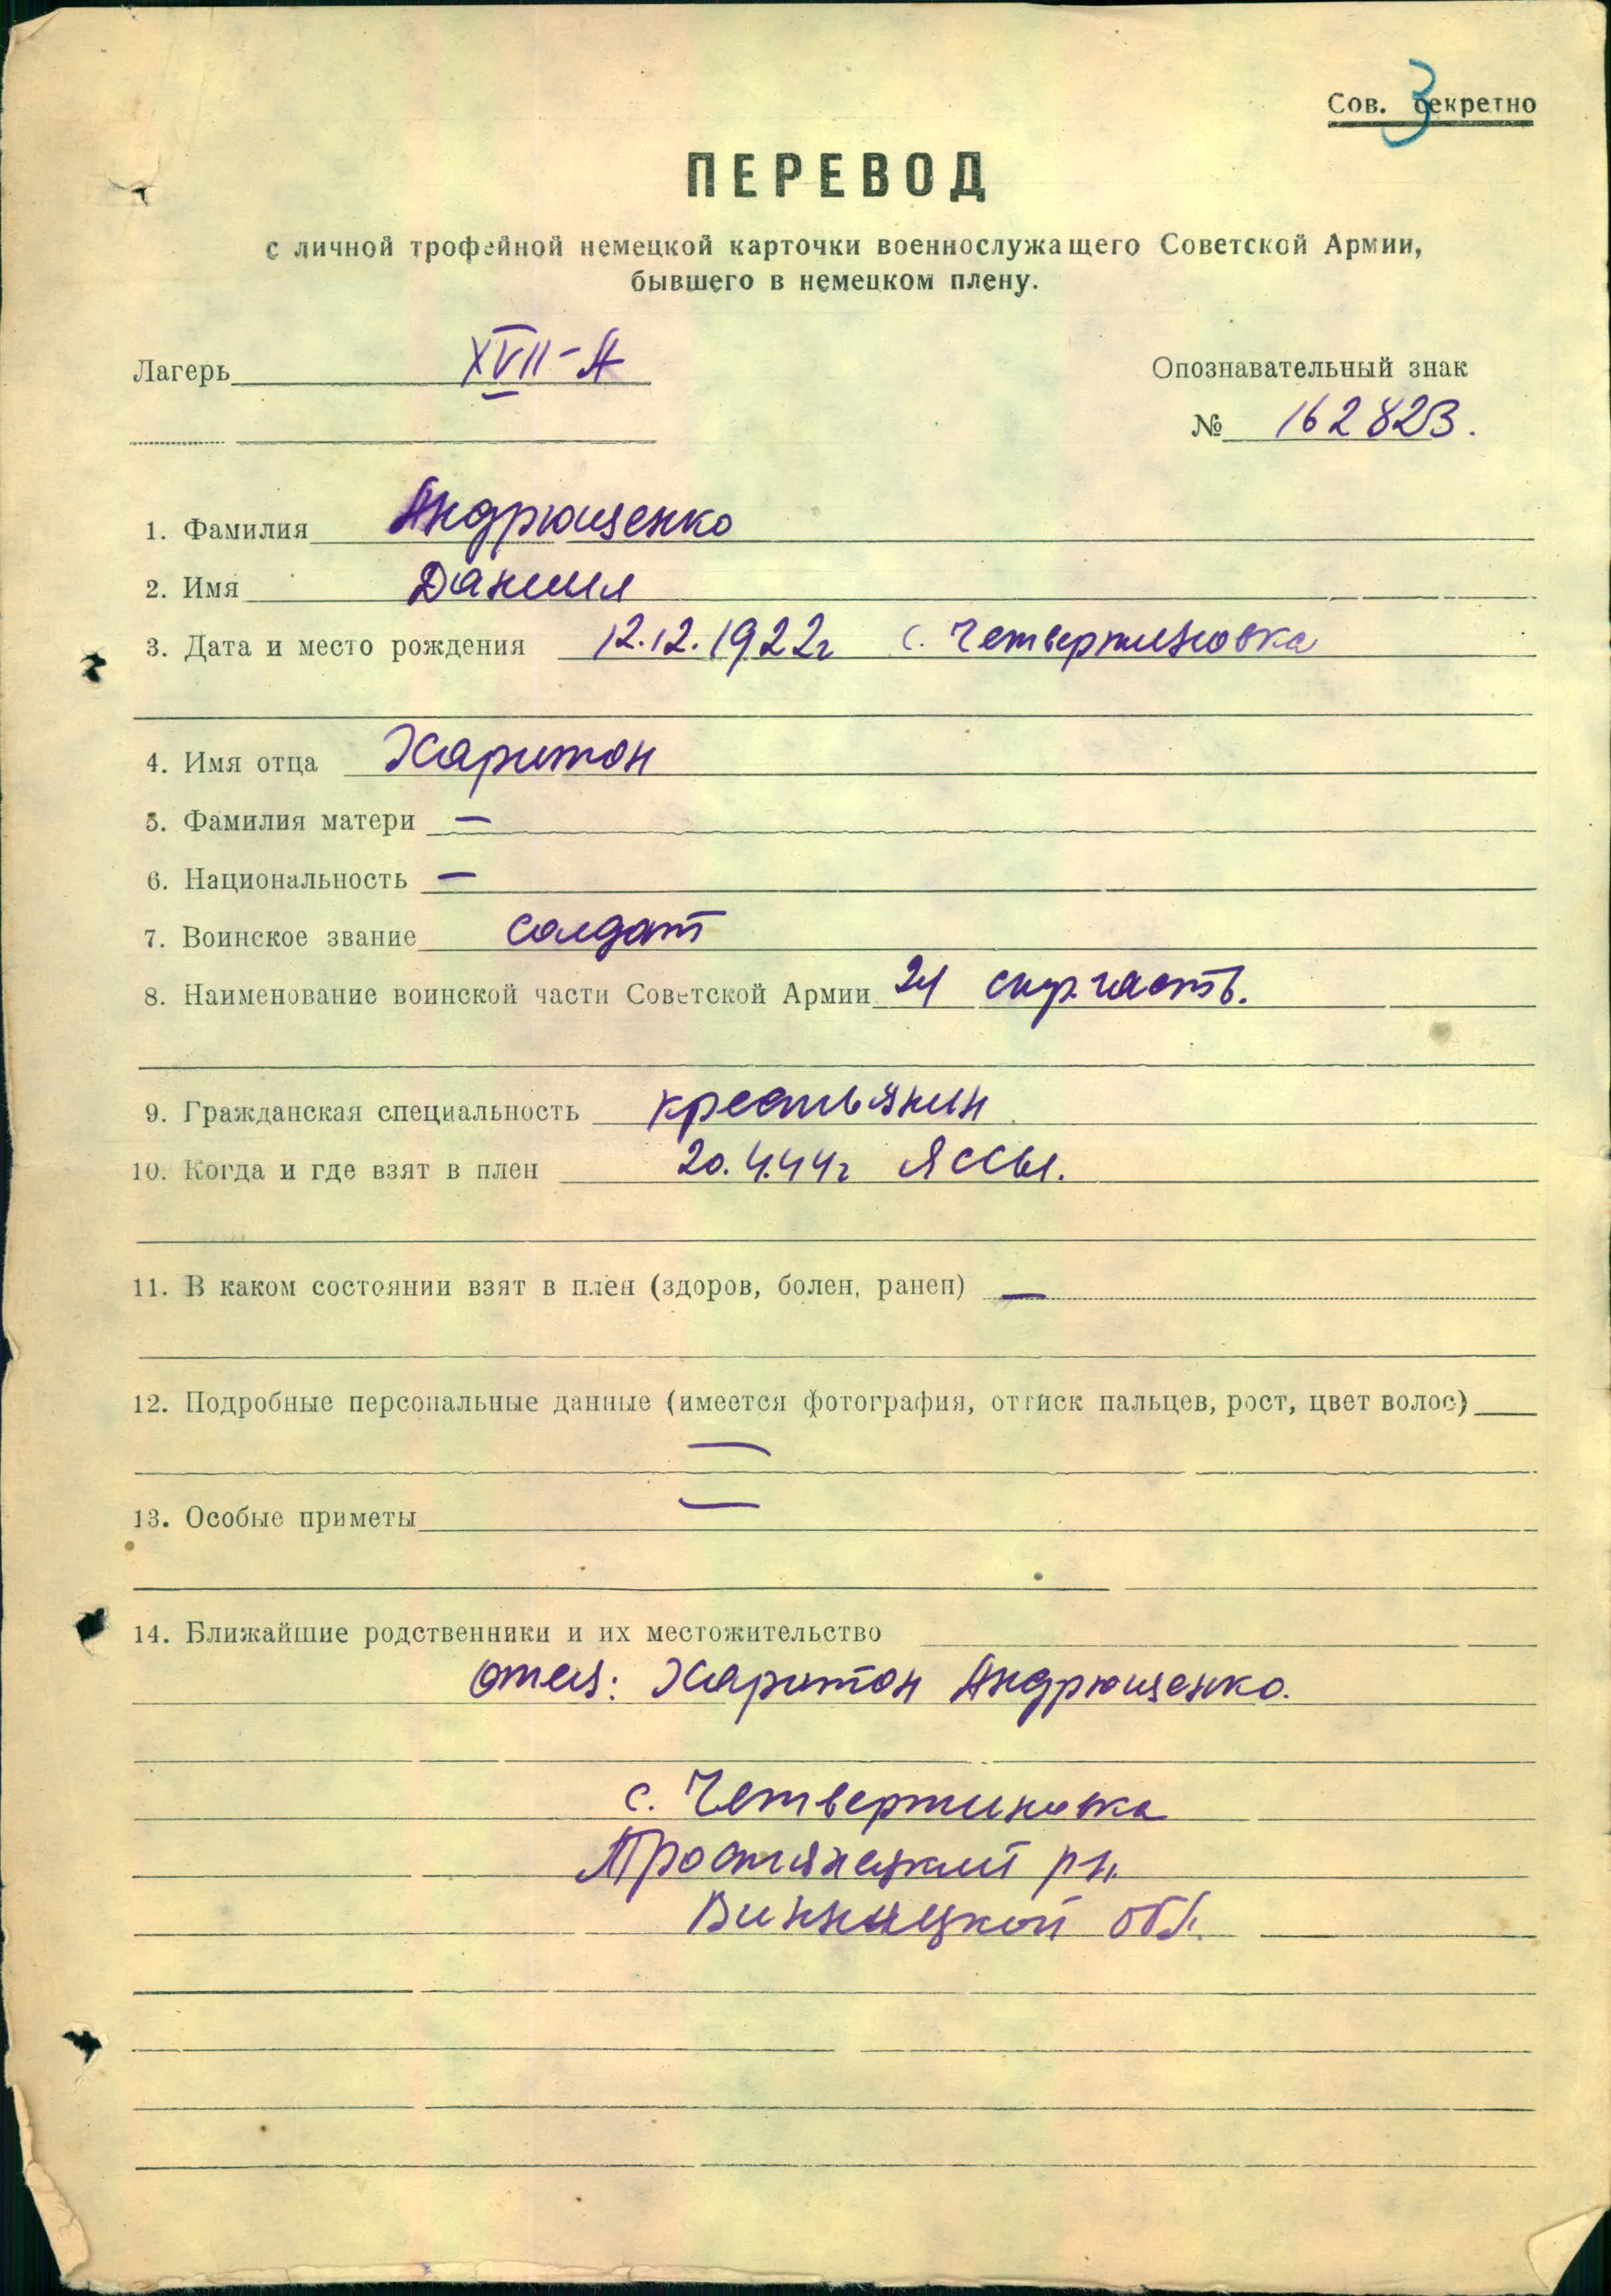 3
Сов. секретно
ПЕРЕВОД
с личной трофейной немецкой карточки военнослужащего Советской Армии,
бывшего в немецком плену.
Лагерь XVII-A
Опознавательный знак
№ 162823.
1. Фамилия Андрющенко
2. Имя Даниил
3. Дата и место рождения 12.12.1922г с. Четвертиновка
4. Имя отца Харитон
5. Фамилия матери —
6. Национальность —
7. Воинское звание солдат
8. Наименование воинской части Советской Армии 21 часть.
9. Гражданская специальность крестьянин
10. Когда и где взят в плен 20.4.44г Яссы.
11. В каком состоянии взят в плен (здоров, болен, ранен) —
12. Подробные персональные данные (имеется фотография, оттиск пальцев, рост, цвет волос)
—
13. Особые приметы —
14. Ближайшие родственники и их местожительство
отец: Харитон Андрющенко.
с. Четвертиновка
Тростянецкий р-н.
Винницкой обл.